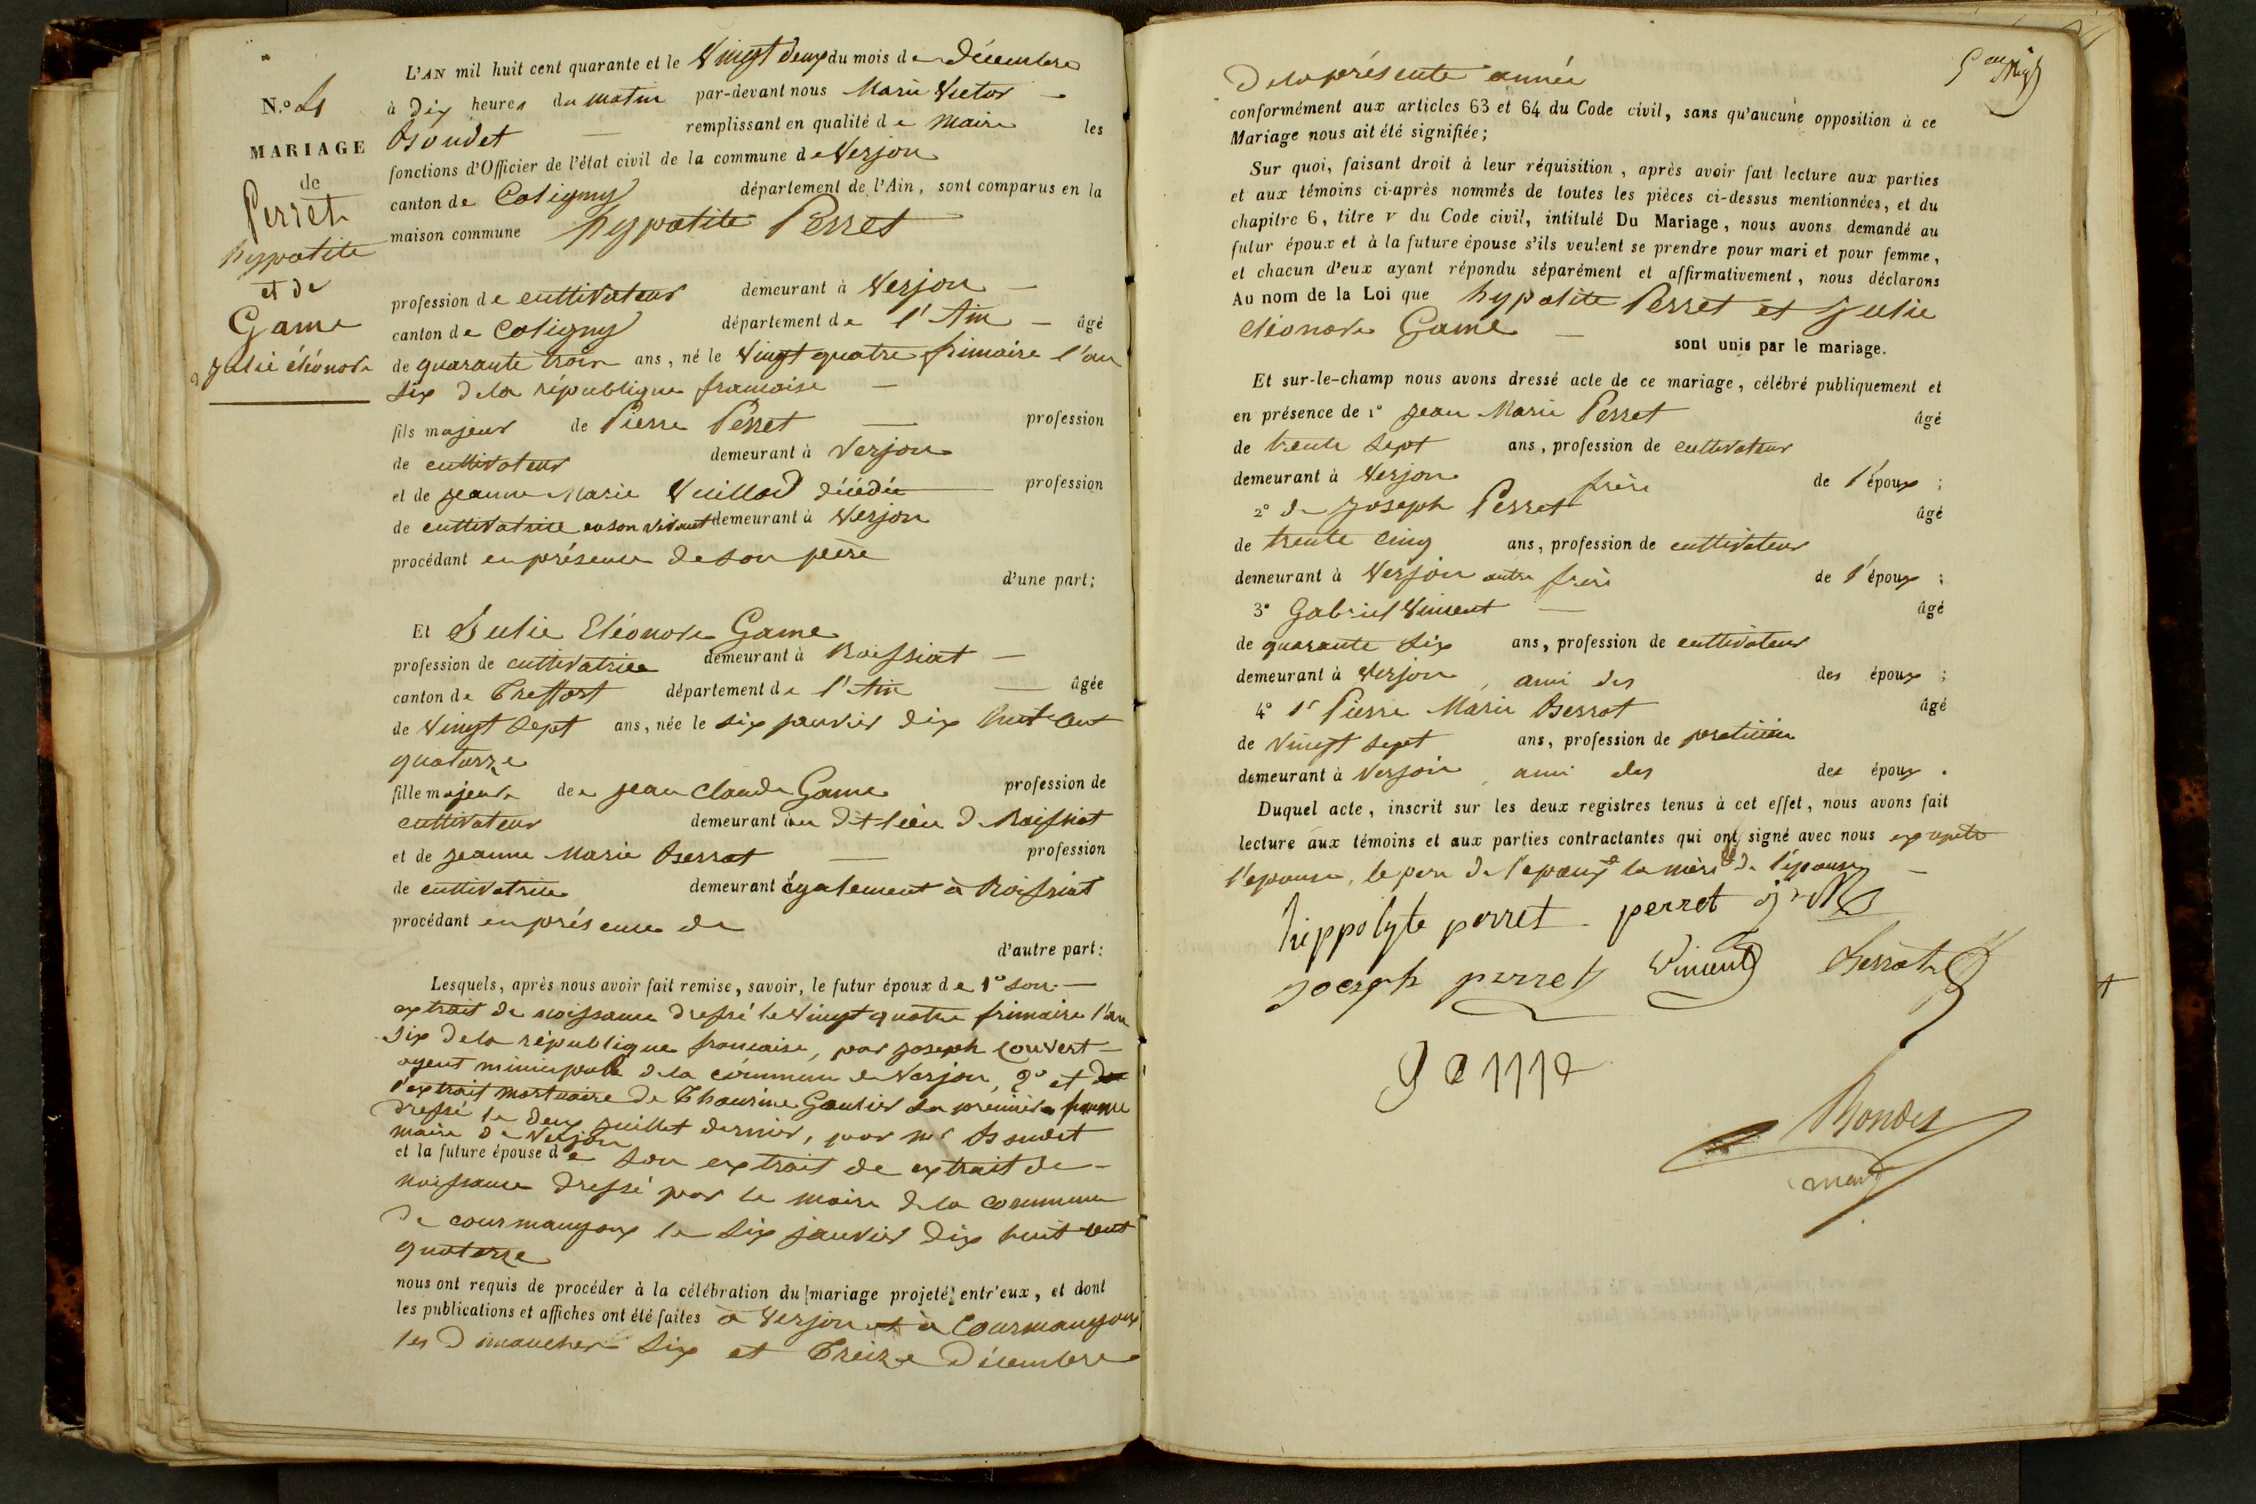 N.o 4
MARIAGE
de
Perret
hypolite
et de
Game
Julie éléonore
L'AN mil huit cent quarante et le Vingt deux du mois de décembre
à dix heures du matin par-devant nous Marie Victor
Bondet remplissant en qualité de Maire les
fonctions d'Officier de l'état civil de la commune de Verjon
canton de Coligny département de l'Ain, sont comparus en la
maison commune hypolite Perret
profession de cultivateur demeurant à Verjon
canton de Coligny département de l'Ain âgé
de quarante trois ans, né le Vingt quatre frimaire l'an
six de la république francaise
fils majeur de Pierre Perret profession
de cultivateur demeurant à Verjon
et de jeanne Marie Vuillod décédée profession
de cultivatrice en son vivant demeurant à Verjon
procédant en présence de son père
d'une part;
Et Julie Eléonore Game
profession de cultivatrice demeurant à Roissiat
canton de Treffort département de l'Ain âgée
de Vingt sept ans, née le six janvier dix huit cent
quatorze
fille majeure de jean Claude Game profession de
cultivateur demeurant au dit lieu de Roissiat
et de jeanne Marie profession
de cultivatrice demeurant également à Roissiat
procédant en présence de
d'autre part:
Lesquels, après nous avoir fait remise, savoir, le futur époux de 1° son
extrait de naissance dressé le Vingt quatre frimaire l'an
six de la république francaise, par joseph Couvert
agent municipal de la commune de Verjon, 2° et de
l'extrait mortuaire de Gautier sa première femme
dressé le deux juillet dernier, par mr Bondet
maire de Verjon
et la future épouse de son extrait de extrait de
naissance dressé par le maire de la commune
de courmangoux le six janvier dix huit cent
quatorze
nous ont requis de procéder à la célébration du mariage projeté entr'eux, et dont
les publications et affiches ont été faites à Verjon et à Courmangoux
les dimanches six et Treize Décembre
De la présente année
conformément aux articles 63 et 64 du Code civil, sans qu'aucune opposition à ce
Mariage nous ait été signifiée;
Sur quoi, faisant droit à leur réquisition, après avoir fait lecture aux parties
et aux témoins ci-après nommés de toutes les pièces ci-dessus mentionnées, et du
chapitre 6, titre v du Code civil, intitulé Du Mariage, nous avons demandé au
futur époux et à la future épouse s'ils veulent se prendre pour mari et pour femme,
et chacun d'eux ayant répondu séparément et affirmativement, nous déclarons
Au nom de la Loi que hypolite Perret et Julie
éléonore Game
sont unis par le mariage.
Et sur-le-champ nous avons dressé acte de ce mariage, célébré publiquement et
en présence de 1° jean Marie Perret âgé
de trente sept ans, profession de cultivateur
demeurant à Verjon frère de l'époux;
2° de joseph Perret âgé
de trente cinq ans, profession de cultivateur
demeurant à Verjon autre frère de l'époux;
3° Gabriel Vincent âgé
de quarante six ans, profession de cultivateur
demeurant à Verjon, ami des des époux;
4° Pierre Marie âgé
de Vingt sept ans, profession de praticien
demeurant à Verjon, ami des des époux.
Duquel acte, inscrit sur les deux registres tenus à cet effet, nous avons fait
lecture aux témoins et aux parties contractantes qui ont signé avec nous excepté
l'épouse, le père de l'époux et la mère de l'épouse
hippolyte perret perret
joseph perret Vincent
game
Bondet
maire